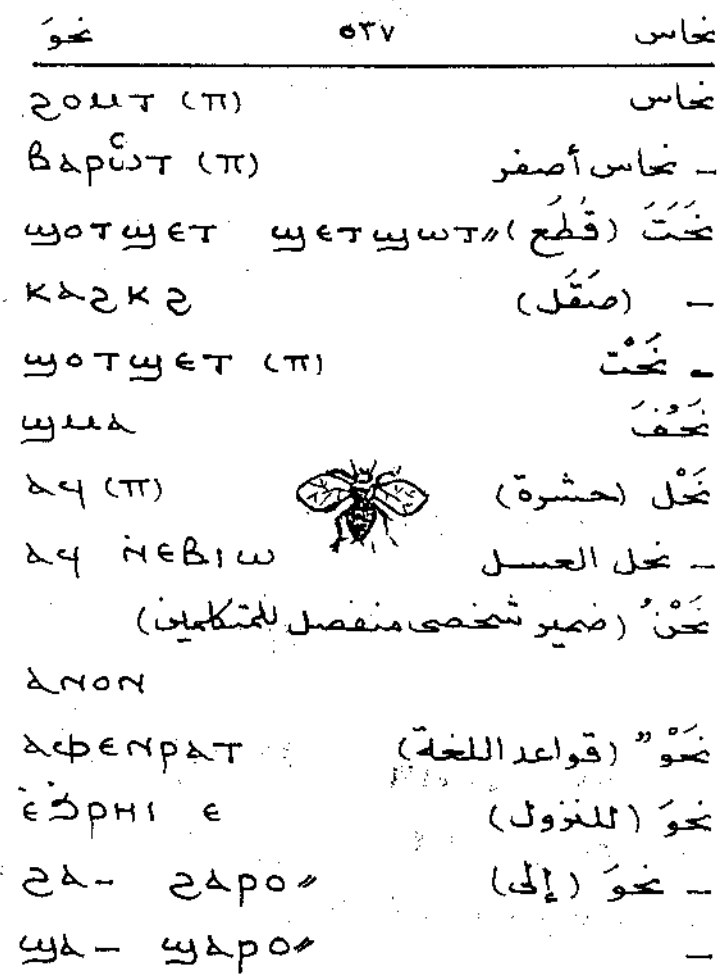 نحاس ٥٣٧ نحوَ
نحاس ϩⲟⲙⲧ (ⲡ)
ـ نحاس أصفر ⲃⲁⲣⲱⲧ (ⲡ)
نَحَتَ (قَطَع) ϣⲟⲧϣⲉⲧ ϣⲉⲧϣⲱⲧ⸗
ـ (صَقَل) ⲕⲁϩⲕϩ
ـ نَحْت ϣⲟⲧϣⲉⲧ (ⲡ)
نَحُفَ ϣⲙⲁ
نَحْل (حشرة) ⲁϥ (ⲡ)
ـ نحل العسل ⲁϥ ⲛ̇ⲉⲃⲓⲱ
نَحْنُ (ضمير شخصى منفصل للمتكلمين)
ⲁⲛⲟⲛ
نَحْوٌ (قواعد اللغة) ⲁⲫⲉⲛⲣⲁⲧ
نحوَ (للنزول) ⲉ̇ϧⲣⲏⲓ ⲉ
ـ نحوَ (إلى) ϩⲁ- ϩⲁⲣⲟ⸗
ـ ϣⲁ- ϣⲁⲣⲟ⸗